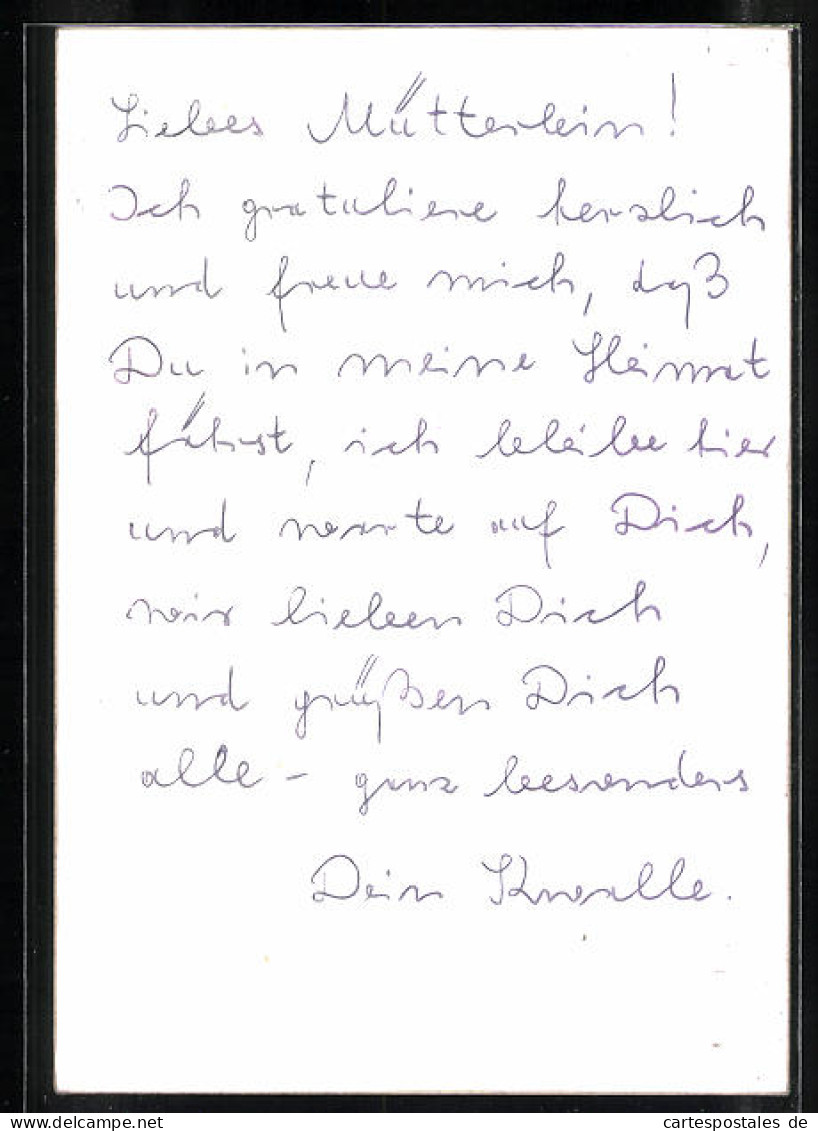 Liebes Mütterlein!
Ich gratuliere herzlich
und freue mich, daß
Du in meine Heimat
fährst, ich bleibe hier
und warte auf Dich,
wir lieben Dich
und grüßen Dich
alle – ganz besonders
Dein Knalle.
www.cartespostales.eu
cartespostales de